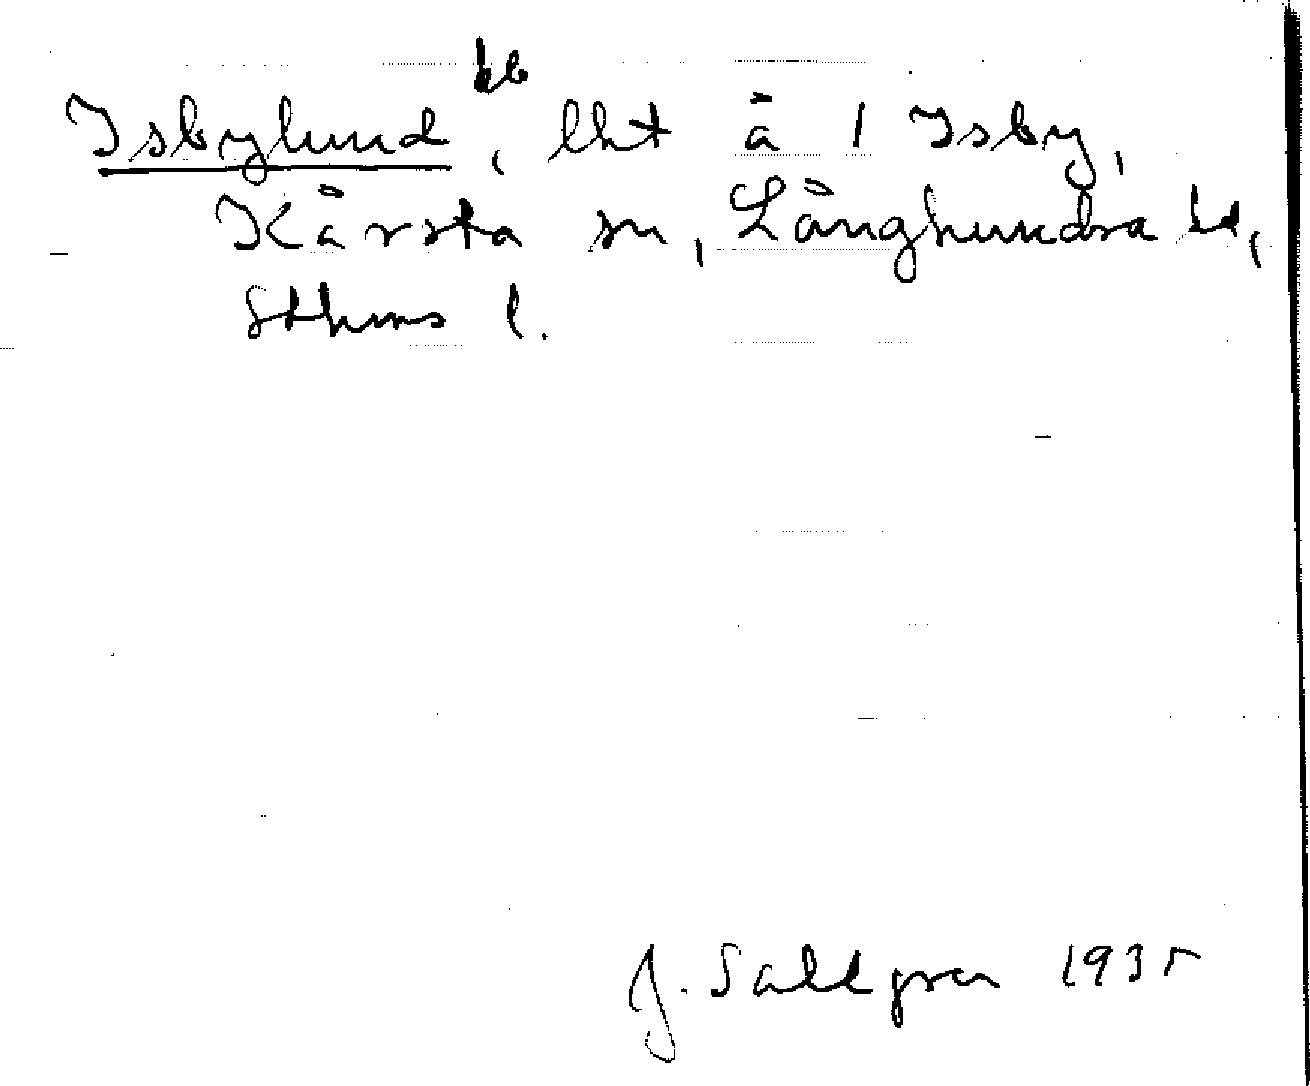 Isbylund, lht å 1 Isby,
Kårsta sn, Långhundra hd,
Sthms l.
J. Sahlgren 1935